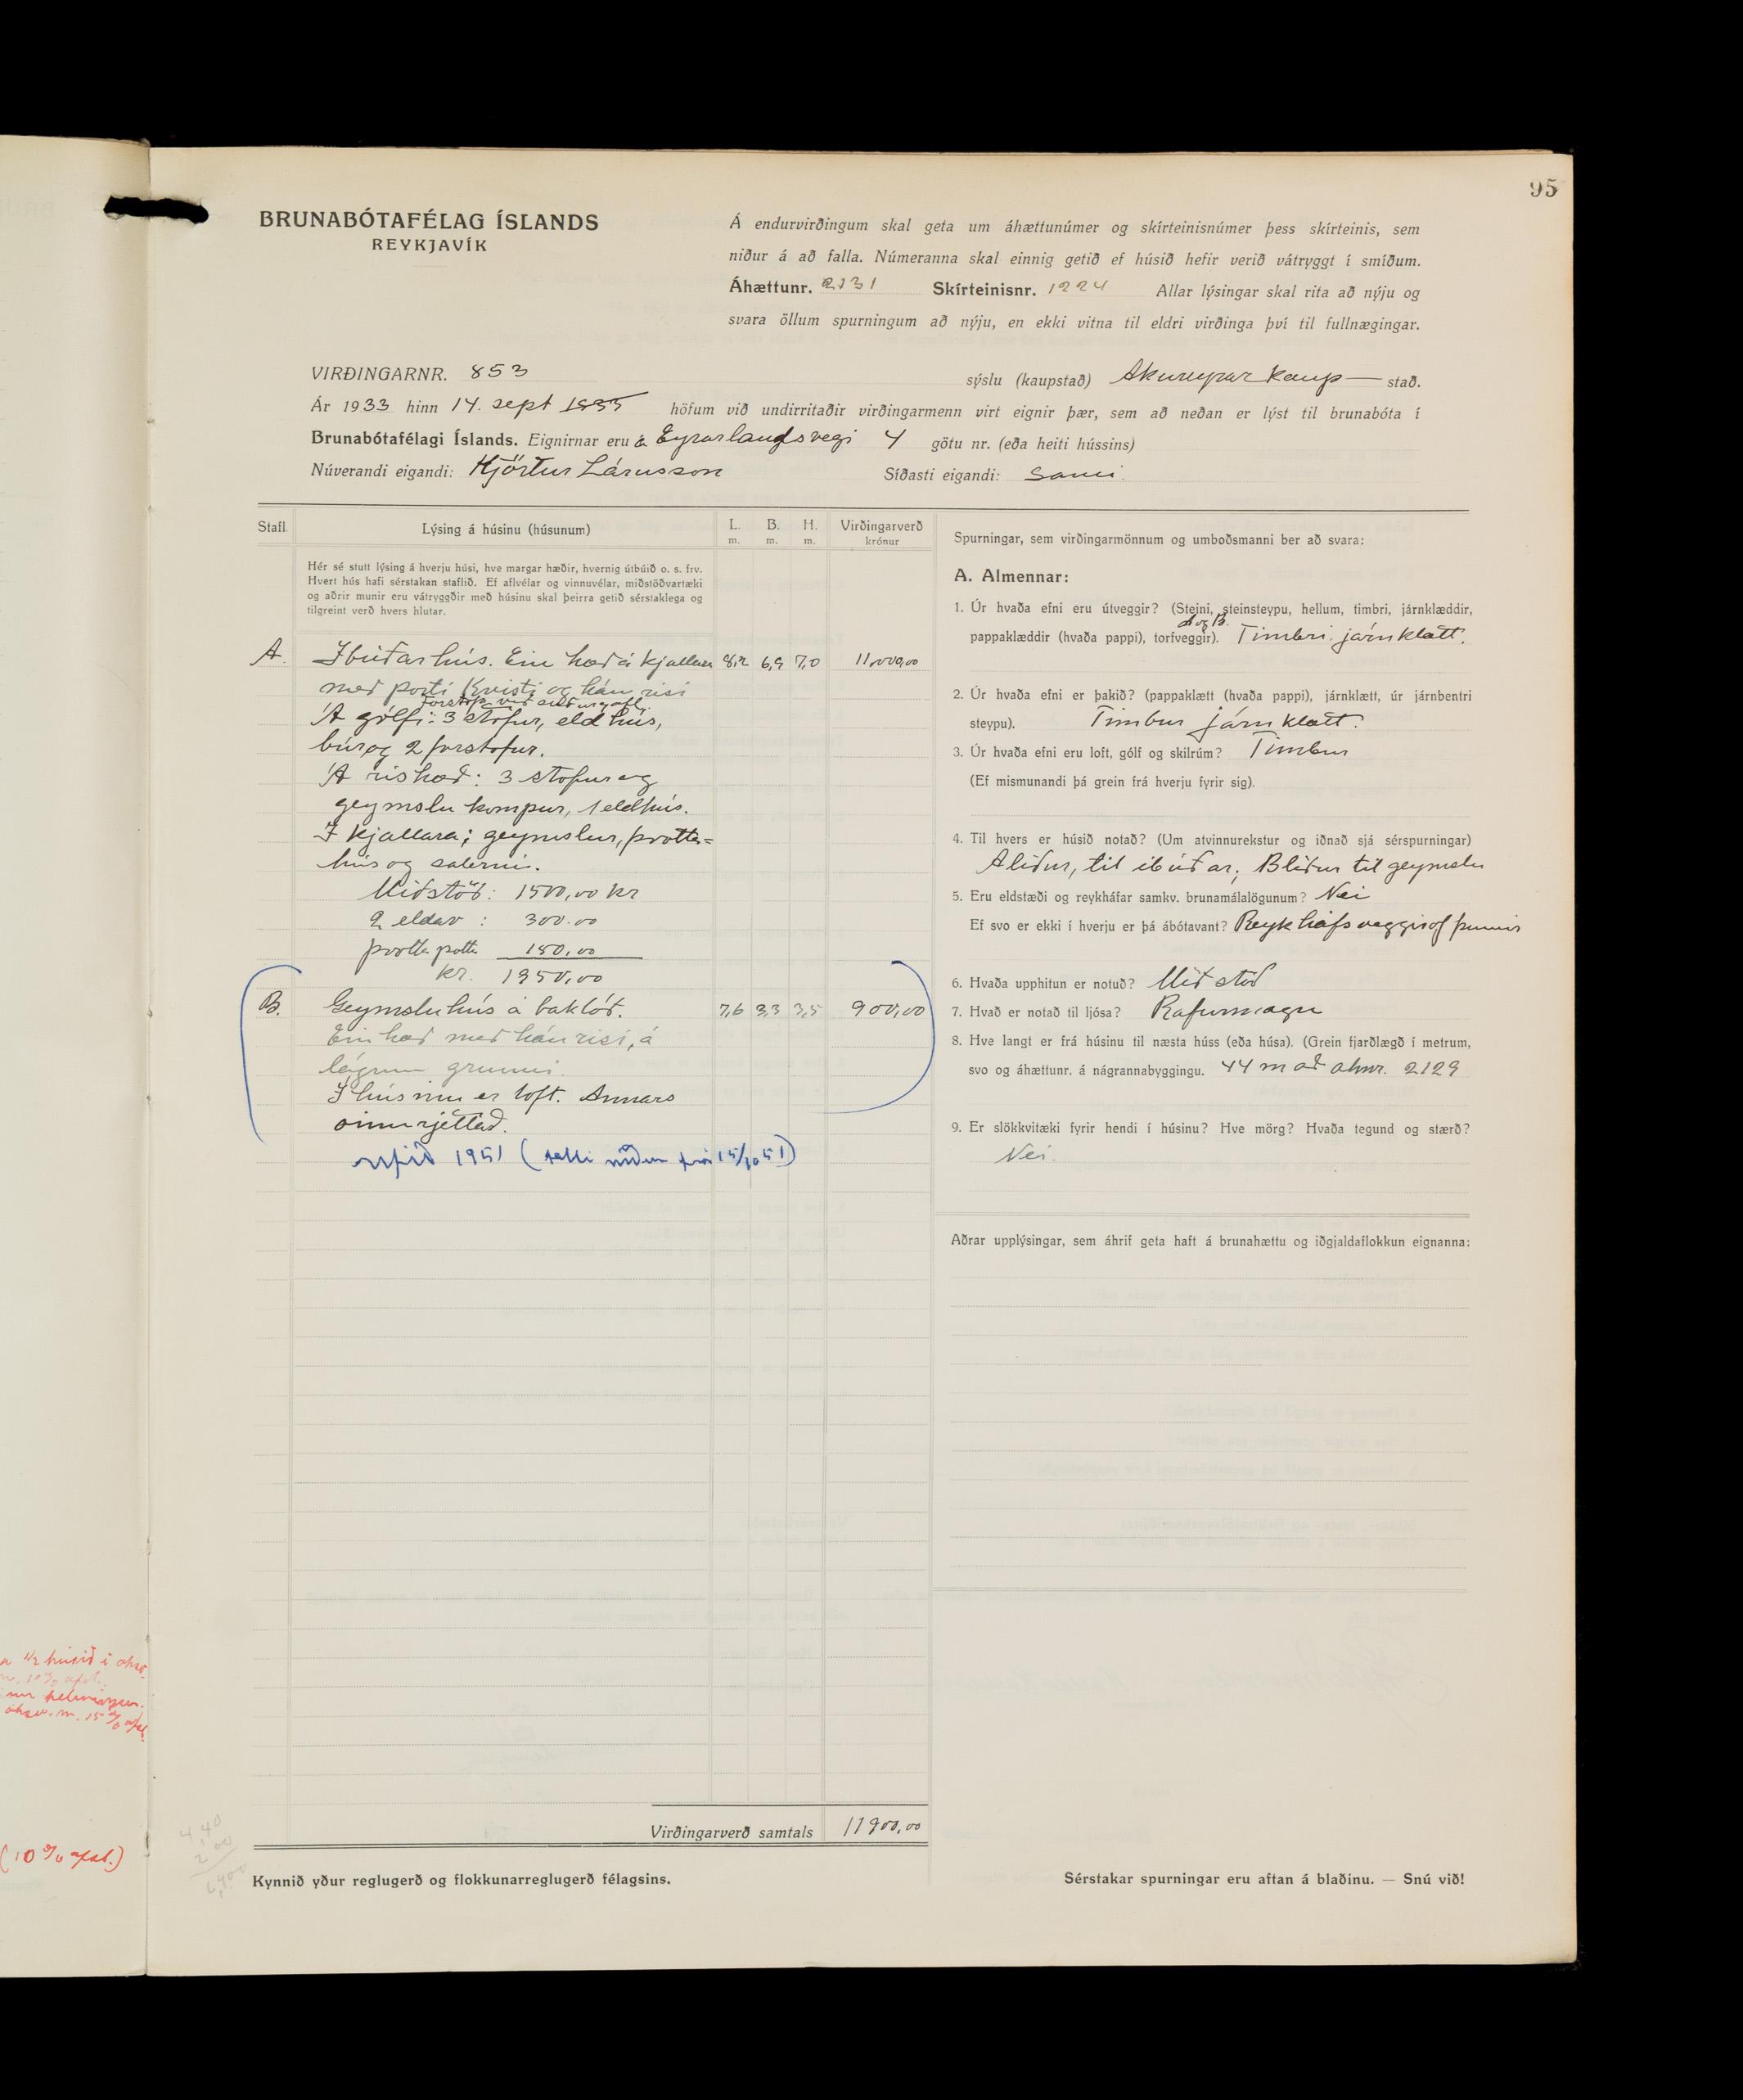 95
BRUNABÓTAFÉLAG ÍSLANDS
REYKJAVÍK
Á endurvirðingum skal geta um áhættunúmer og skírteinisnúmer þess skírteinis, sem
niður á að falla. Númeranna skal einnig getið ef húsið hefir verið vátryggt í smíðum.
Áhættunr. 2131 Skírteinisnr. 1224 Allar lýsingar skal rita að nýju og
svara öllum spurningum að nýju, en ekki vitna til eldri virðinga því til fullnægingar.
VIRÐINGARNR. 853 sýslu (kaupstað) Akureyrar kaup— stað.
Ár 1933 hinn 14. sept 1933 höfum við undirritaðir virðingarmenn virt eignir þær, sem að neðan er lýst til brunabóta í
Brunabótafélagi Íslands. Eignirnar eru á Eyrarlandsvegi 4 götu nr. (eða heiti hússins)
Núverandi eigandi: Hjörtur Lárusson Síðasti eigandi: Sami.
Stafl. Lýsing á húsinu (húsunum) L. m. B. m. H. m. Virðingarverð krónur
Hér sé stutt lýsing á hverju húsi, hve margar hæðir, hvernig útbúið o. s. frv.
Hvert hús hafi sérstakan staflið. Ef aflvélar og vinnuvélar, miðstöðvartæki
og aðrir munir eru vátryggðir með húsinu skal þeirra getið sérstaklega og
tilgreint verð hvers hlutar.
A. Íbúðarhús. Ein hæð á kjallara 8,2 6,9 7,0 11,000,00
með porti kvisti og háu risi
Forstofa við suðurgafl.
Á gólfi: 3 stofur, eldhús,
búr og 2 forstofur.
Á rishæð: 3 stofur og
geymslu kompur, 1 eldhús.
Í kjallara; geymslur, þvotta=
hús og salerni.
Miðstöð: 1500,00 kr
2 eldav : 300.00
þvotta potta 150,00
kr. 1950,00
B. Geymsluhús á baklóð. 7,6 3,3 3,5 900,00
Ein hæð með háu risi, á
lágum grunni.
Í húsinu er loft. Annars
óinnrjéttað.
rifið 1951 (falli niður frá 15/10 51)
Virðingarverð samtals 11900,00
Kynnið yður reglugerð og flokkunarreglugerð félagsins.
Spurningar, sem virðingarmönnum og umboðsmanni ber að svara:
A. Almennar:
1. Úr hvaða efni eru útveggir? (Steini, steinsteypu, hellum, timbri, járnklæddir,
A og B.
pappaklæddir (hvaða pappi), torfveggir). Timbri, járnklætt.
2. Úr hvaða efni er þakið? (pappaklætt (hvaða pappi), járnklætt, úr járnbentri
steypu). Timbur járnklætt.
3. Úr hvaða efni eru loft, gólf og skilrúm? Timbur
(Ef mismunandi þá grein frá hverju fyrir sig).
4. Til hvers er húsið notað? (Um atvinnurekstur og iðnað sjá sérspurningar)
A liður, til íbúðar; B liður til geymslu
5. Eru eldstæði og reykháfar samkv. brunamálalögunum? Nei
Ef svo er ekki í hverju er þá ábótavant? Reykháfsveggir of þunnir
6. Hvaða upphitun er notuð? Miðstöð
7. Hvað er notað til ljósa? Rafurmagn
8. Hve langt er frá húsinu til næsta húss (eða húsa). (Grein fjarðlægð í metrum,
svo og áhættunr. á nágrannabyggingu. 44 m að áhnr. 2129
9. Er slökkvitæki fyrir hendi í húsinu? Hve mörg? Hvaða tegund og stærð?
Nei.
Aðrar upplýsingar, sem áhrif geta haft á brunahættu og iðgjaldaflokkun eignanna:
Sérstakar spurningar eru aftan á blaðinu. — Snú við!
1/2 húsið í
helmingur.
m. 15%
(10% afsl.)
4,40
2,00
6,40